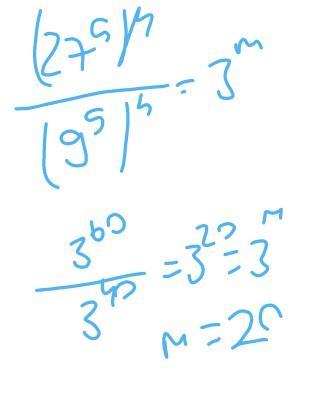 (27^5)^4 / (9^5)^4 = 3^m
3^60 / 3^40 = 3^20 = 3^m
m = 20